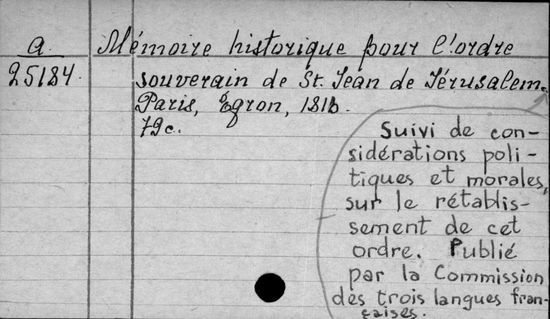 a
25184
Mémoire historique pour l'ordre
souverain de St. Jean de Jérusalem.
Paris, Egron, 1816.
79c.
Suivi de con-
sidérations poli-
tiques et morales,
sur le rétablis-
sement de cet
ordre. Publié
par la Commission
des trois langues fran-
çaises.